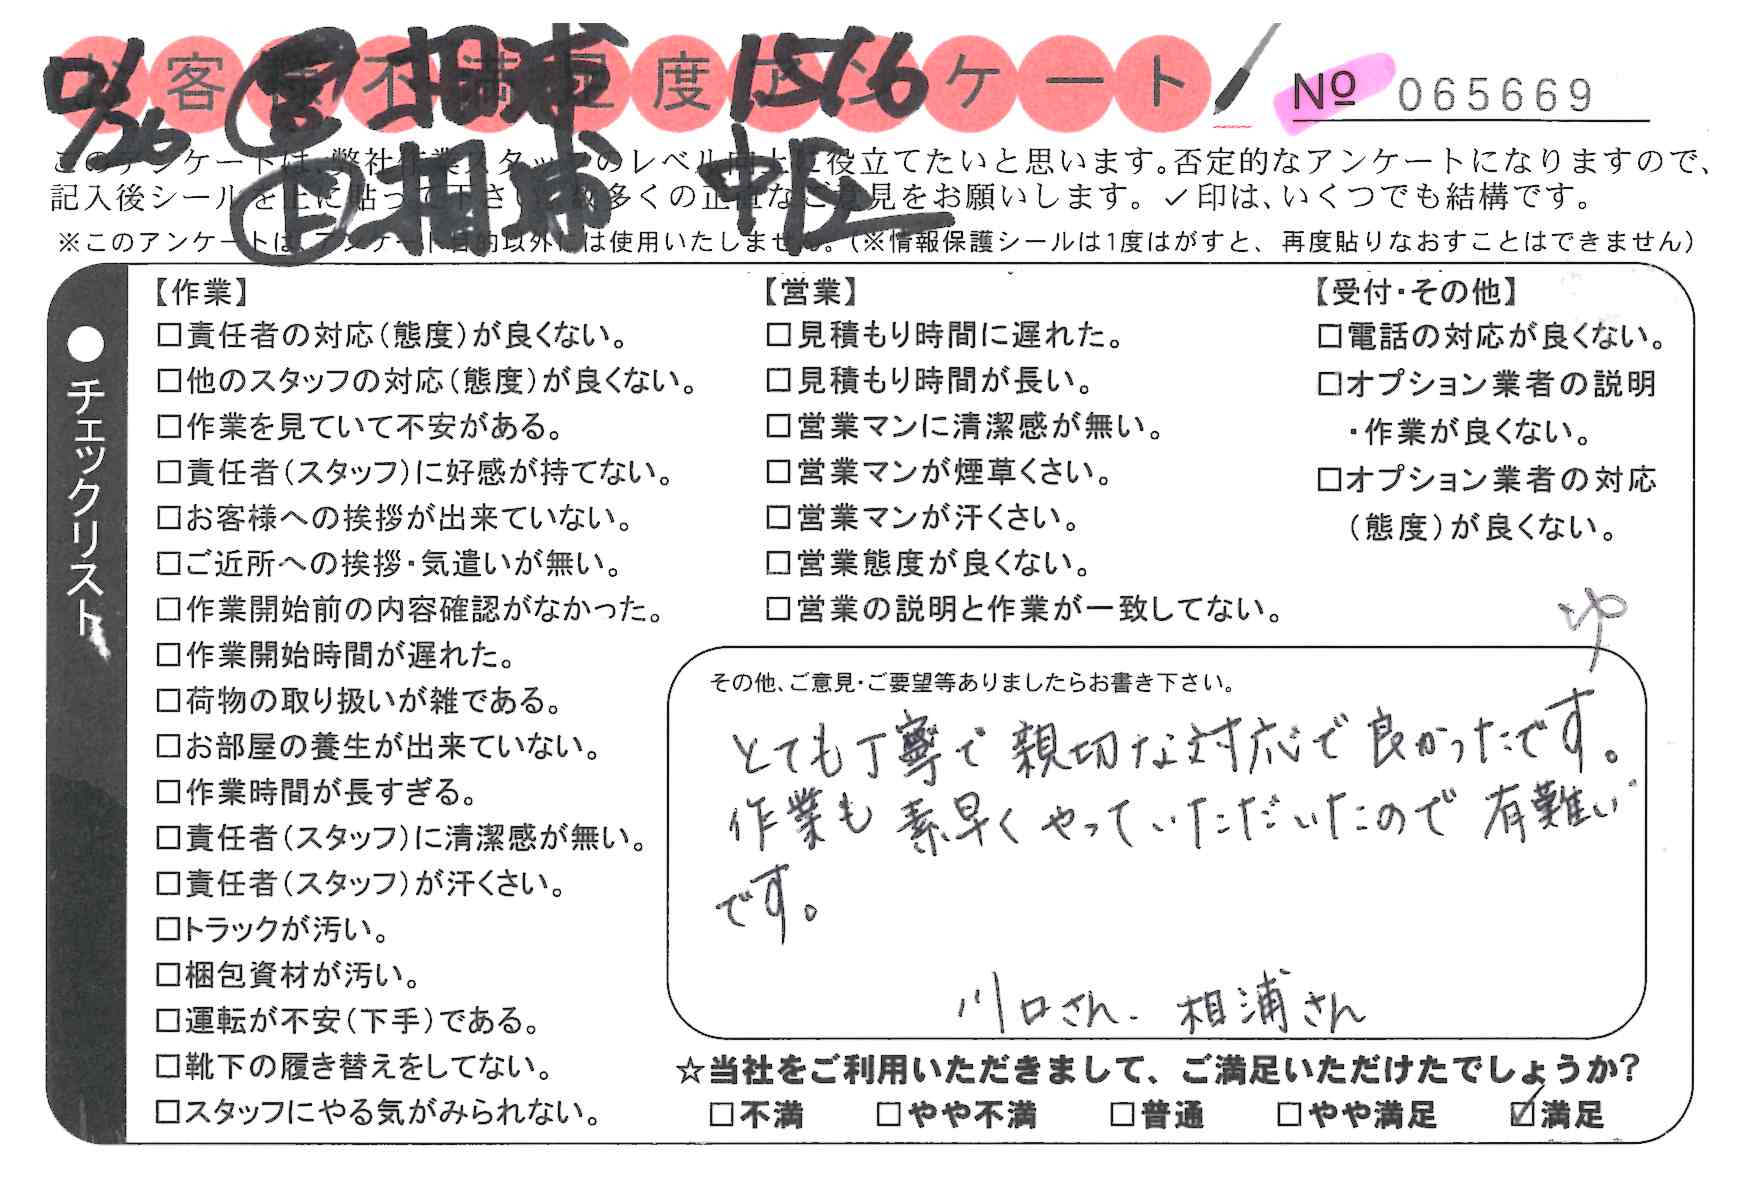 お客様不満足度アンケート No 065669
12/26 営 相浦 1576
上 相浦 中区
このアンケートは、弊社作業スタッフのレベル向上に役立てたいと思います。否定的なアンケートになりますので、
記入後シールを上に貼って下さい。数多くの正直なご意見をお願いします。✓印は、いくつでも結構です。
※このアンケートは、アンケート目的以外には使用いたしません。(※情報保護シールは1度はがすと、再度貼りなおすことはできません)
●チェックリスト
【作業】
□責任者の対応(態度)が良くない。
□他のスタッフの対応(態度)が良くない。
□作業を見ていて不安がある。
□責任者(スタッフ)に好感が持てない。
□お客様への挨拶が出来ていない。
□ご近所への挨拶・気遣いが無い。
□作業開始前の内容確認がなかった。
□作業開始時間が遅れた。
□荷物の取り扱いが雑である。
□お部屋の養生が出来ていない。
□作業時間が長すぎる。
□責任者(スタッフ)に清潔感が無い。
□責任者(スタッフ)が汗くさい。
□トラックが汚い。
□梱包資材が汚い。
□運転が不安(下手)である。
□靴下の履き替えをしてない。
□スタッフにやる気がみられない。
【営業】
□見積もり時間に遅れた。
□見積もり時間が長い。
□営業マンに清潔感が無い。
□営業マンが煙草くさい。
□営業マンが汗くさい。
□営業態度が良くない。
□営業の説明と作業が一致してない。
【受付・その他】
□電話の対応が良くない。
□オプション業者の説明
・作業が良くない。
□オプション業者の対応
(態度)が良くない。
ゆ
その他、ご意見・ご要望等ありましたらお書き下さい。
とても丁寧で親切な対応で良かったです。
作業も素早くやっていただいたので有難い
です。
川口さん、相浦さん
☆当社をご利用いただきまして、ご満足いただけたでしょうか?
□不満 □やや不満 □普通 □やや満足 ☑満足